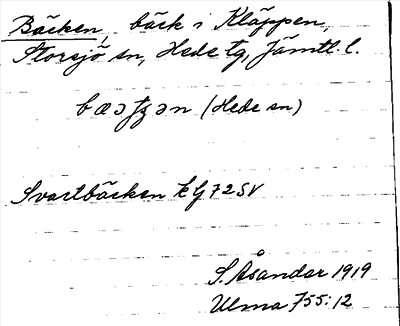 Bäcken, bäck i Kläppen,
Storsjö sn, Hede tg, Jämtl. l.
(Hede sn)
Svartbäcken kG 72 SV
S. Åsandar 1919
Ulma 755:12